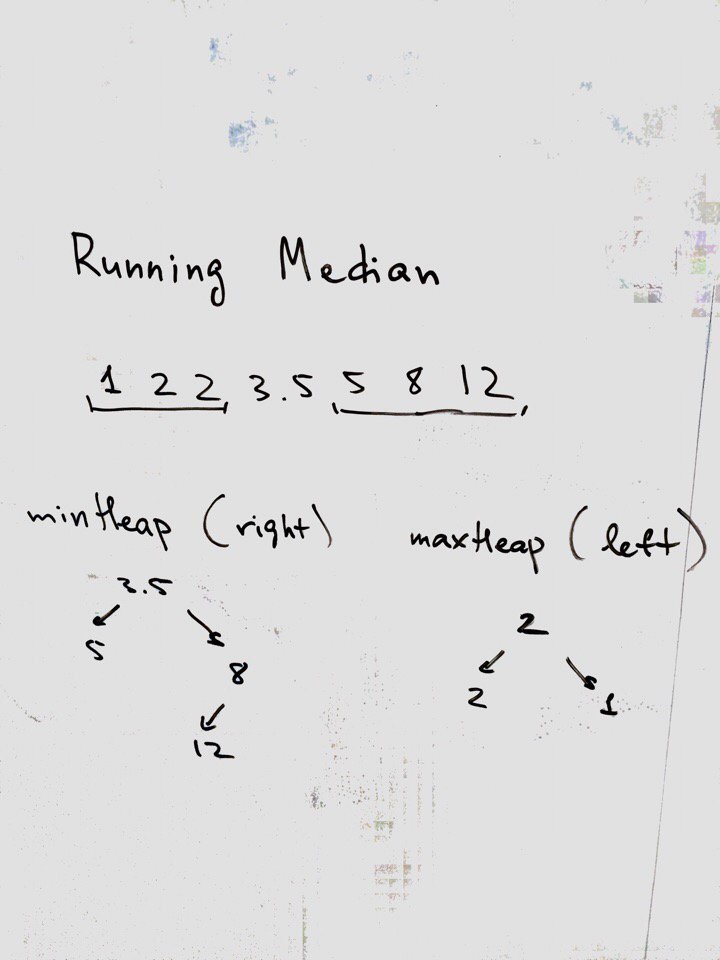 Running Median
1 2 2 3.5 5 8 12
minHeap (right)
maxHeap (left)
3.5
5
8
12
2
2
1